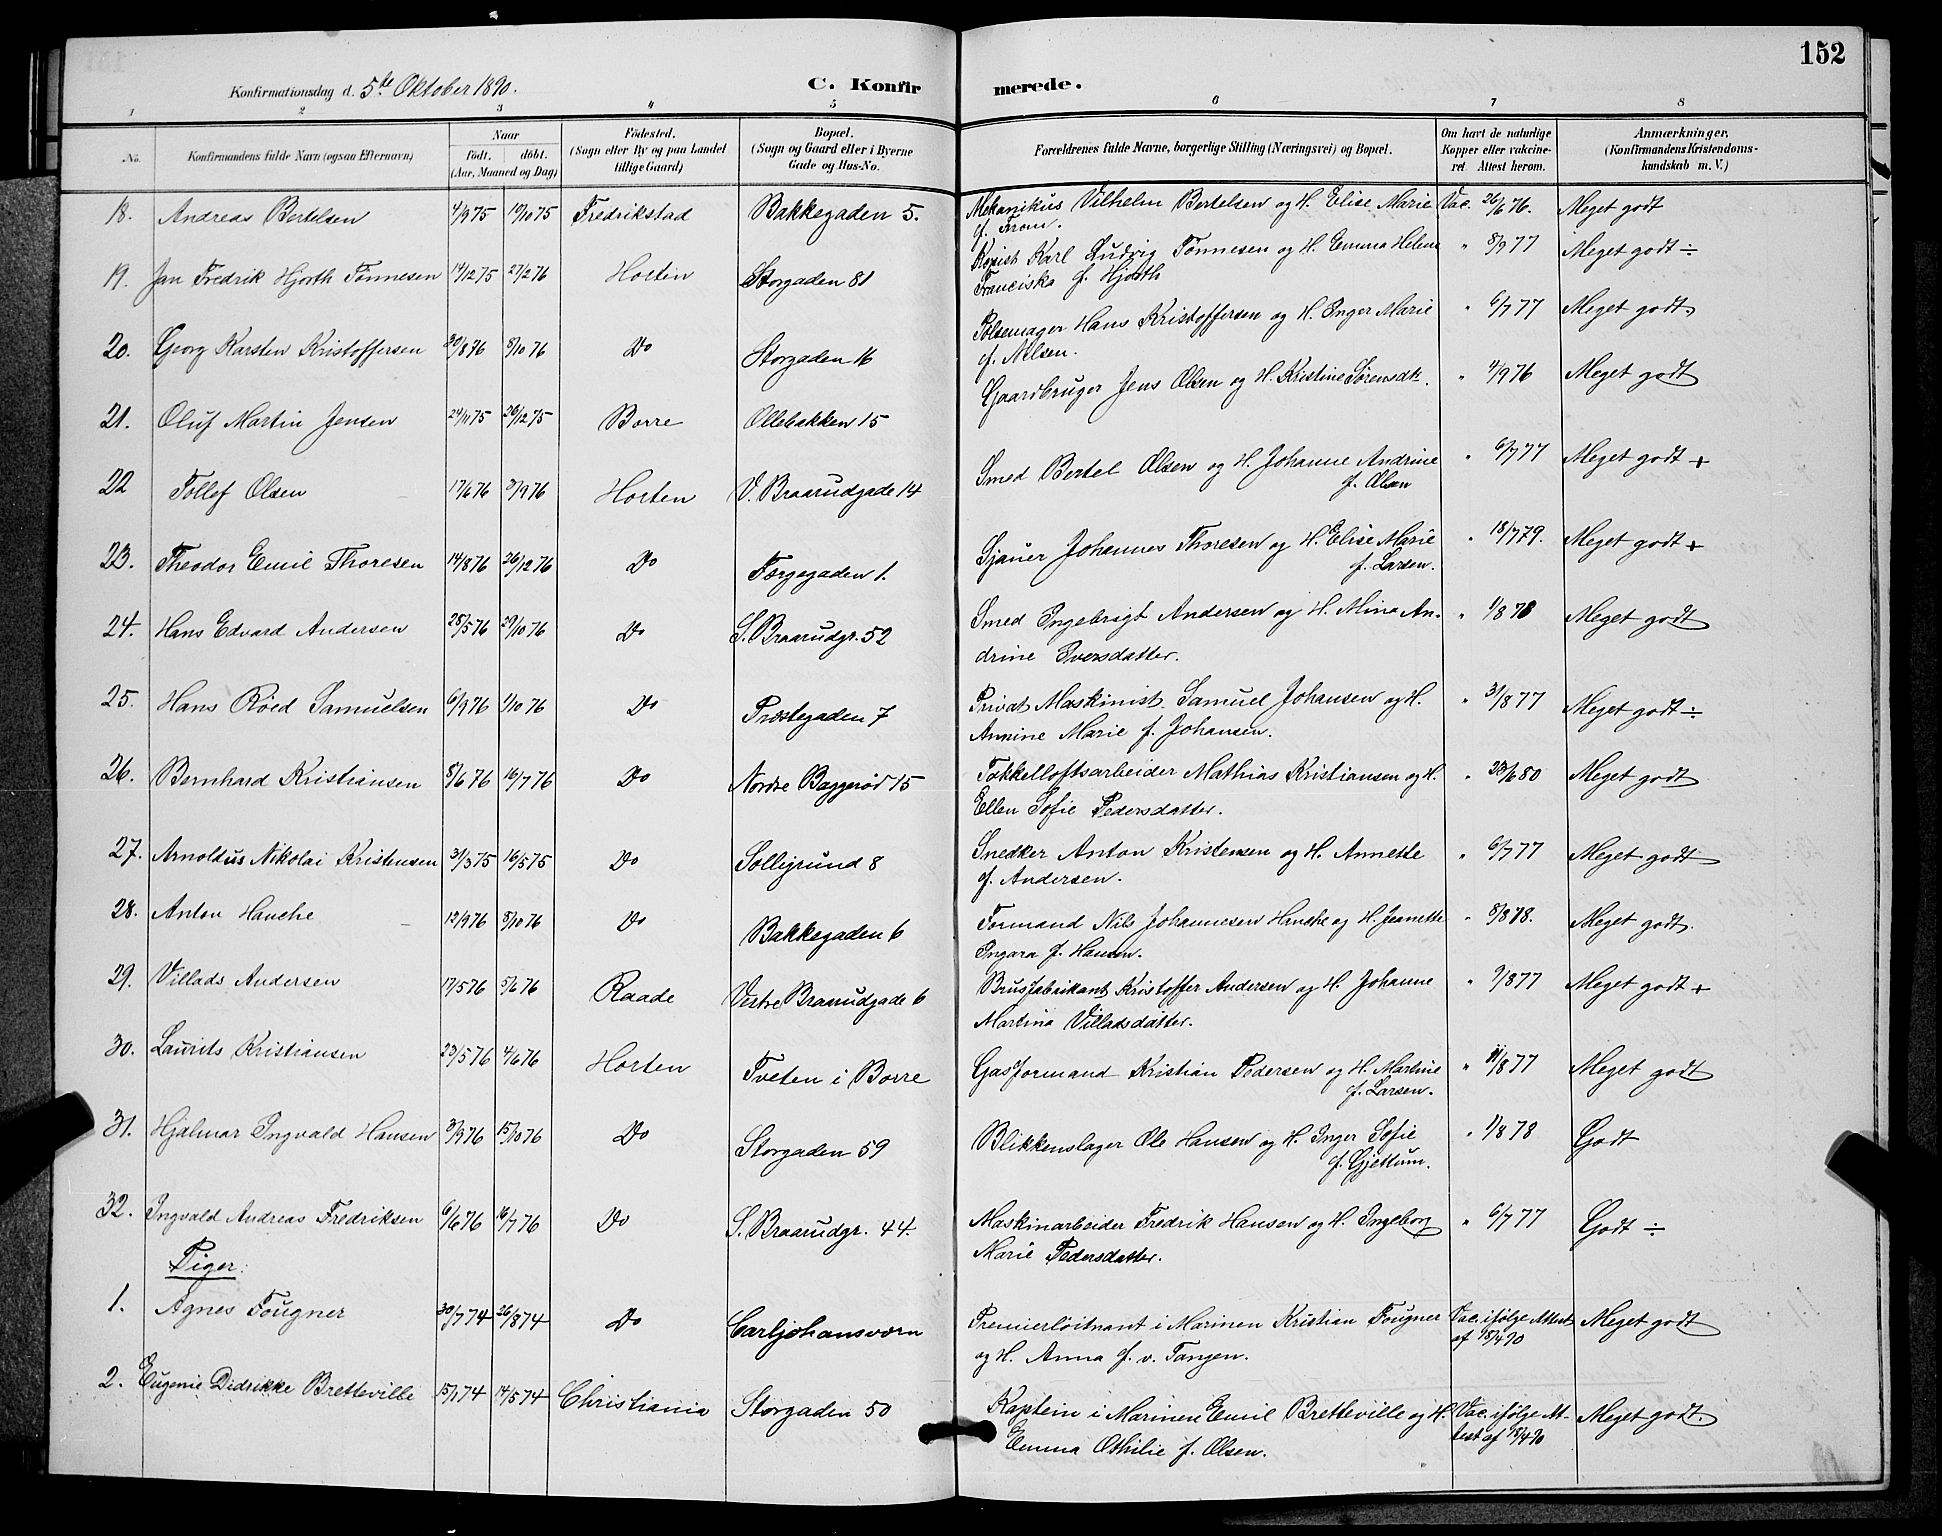 152
Konfirmationsdag d. 5te Oktober 1890.
C. Konfirmerede.
1 2 3 4 5 6 7 8
No. Konfirmandens fulde Navn (ogsaa Efternavn) Naar födt. döbt. (Aar, Maaned og Dag) Födested. (Sogn eller By og paa Landet tillige Gaard) Bopæl. (Sogn og Gaard eller i Byerne Gade og Hus-No. Forældrenes fulde Navne, borgerlige Stilling (Næringsvei) og Bopæl. Om havt de naturlige Kopper eller vakcineret. Attest herom. Anmærkninger, (Konfirmandens Kristendomskundskab m. V.)
18. Andreas Bertelsen 4/9 75 19/10 75 Fredrikstad Bakkegaden 5. Mekanikus Vilhelm Bertelsen og H. Elise Marie Vac. 26/6 76. Meget godt
f. From.
19. Jan Fredrik Hjorth Tönnesen 14/12 75 27/2 76 Horten Storgaden 81 Kopist Karl Ludvig Tönnesen og H. Emma Helene " 8/9 77 Meget godt ÷
Franciska f. Hjorth
20. Georg Karsten Kristoffersen 20/8 76 8/10 76 Do Storgaden 16 Pölsemager Hans Kristoffersen og H. Inger Marie " 6/7 77 Meget godt
f. Nilsen.
21. Oluf Martin Jensen 24/11 75 26/12 75 Borre Ollebakken 15 Gaardbruger Jens Olsen og H. Kristine Sörensdt. " 4/9 76 Meget godt
22 Tollef Olsen 17/6 76 3/9 76 Horten V. Braarudgade 14 Smed Bertel Olsen og H. Johanne Andrine " 6/7 77 Meget godt +
f. Olsen
23. Theodor Emil Thoresen 14/8 76 26/12 76 Do Færgegaden 1. Sjauer Johannes Thoresen og H. Elise Marie " 18/7 79. Meget godt +
f. Larsen.
24. Hans Edvard Andersen 28/5 76 29/10 76 Do S. Braarudgr. 52 Smed Ingebrigt Andersen og H. Mina An- " 1/8 78 Meget godt
drine Iversdatter.
25. Hans Röed Samuelsen 6/9 76 1/10 76 Do Præstegaden 7 Privat Maskinist Samuel Johansen og H. " 31/8 77 Meget godt ÷
Annine Marie f. Johansen.
26. Bernhard Kristiansen 8/6 76 16/7 76 Do Nordre Baggeröd 15 Takkelloftsarbeider Mathias Kristiansen og H. " 23/6 80 Meget godt
Ellen Sofie Pedersdatter.
27. Arnoldus Nikolai Kristensen 31/3 75 16/5 75 Do Solligrund 8 Snedker Anton Kristensen og H. Annette " 6/7 77 Meget godt
f. Andersen.
28. Anton Hanche 12/9 76 8/10 76 Do Bakkegaden 6 Formand Nils Johannesen Hanche og H. Jeanette " 8/8 78. Meget godt.
Ingara f. Hansen.
29. Villads Andersen 17/5 76 5/6 76 Raade Vestre Braarudgade 6 Brusfabrikant Kristoffer Andersen og H. Johanne " 9/8 77 Meget godt +
Martina Villadsdatter.
30. Laurits Kristiansen 23/5 76 4/6 76 Horten Tveten i Borre Gasformand Kristian Pedersen og H. Martine " 31/8 77 Meget godt
f. Larsen.
31. Hjalmar Ingvald Hansen 3/9 76 15/10 76 Do Storgaden 59 Blikkenslager Ole Hansen og H. Inger Sofie " 1/8 78 Godt
f. Gjettum.
32. Ingvald Andreas Fredriksen 6/6 76 16/7 76 Do S. Braarudgr. 44. Maskinarbeider Fredrik Hansen og H. Ingeborg " 6/7 77 Godt ÷
Marie Pedersdatter.
Piger:
1. Agnes Fougner 30/7 74 26/8 74 Do Carljohansværn Premierlöitnant i Marinen Kristian Fougner Vac. ifölge Attest Meget godt
og H. Anna f. v. Tangen. af 18/4 90
2. Eugenie Didrikke Bretteville 15/1 74 14/5 74 Christiania Storgaden 50 Kaptein i Marinen Emil Bretteville og H. Vac. ifölge At- Meget godt.
Emma Othilie f. Olsen. test af 18/4 90